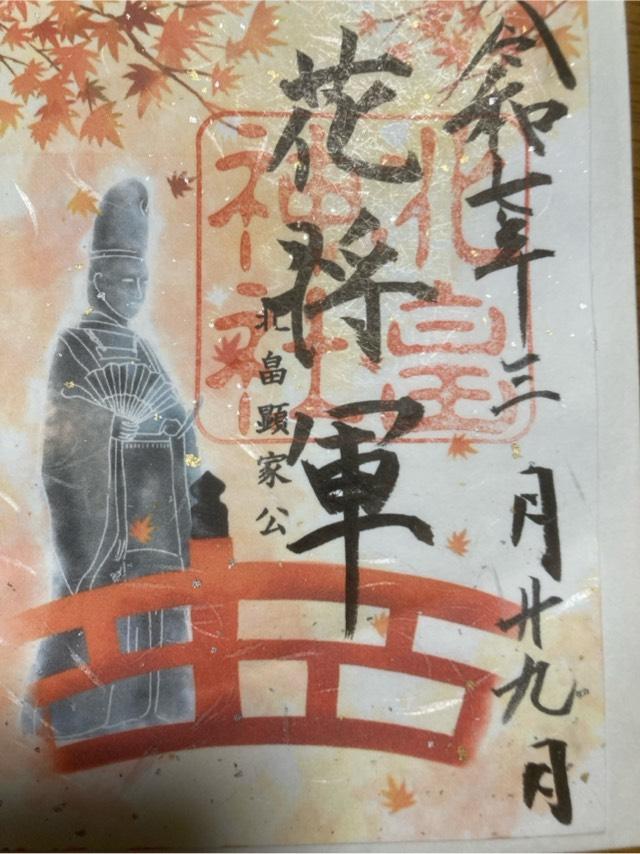 令和七年三月廿九月
花将軍
北畠顕家公
北畠
神社